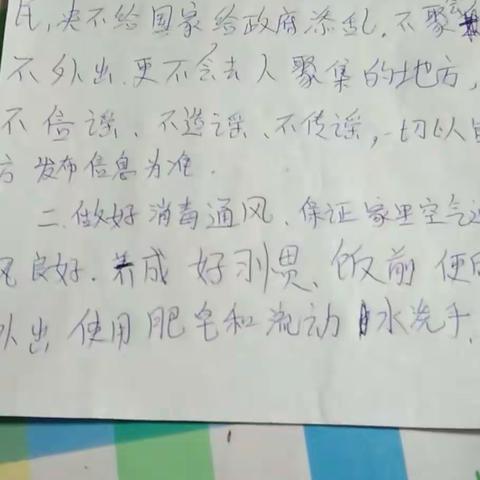 民,决不给国家给政府添乱.不聚
不外出.更不会去人聚集的地方,
不信谣、不造谣、不传谣,一切以官
方发布信息为准.
二.做好消毒通风、保证家里空气
风良好.养成好习惯、饭前便
外出使用肥皂和流动水洗手.